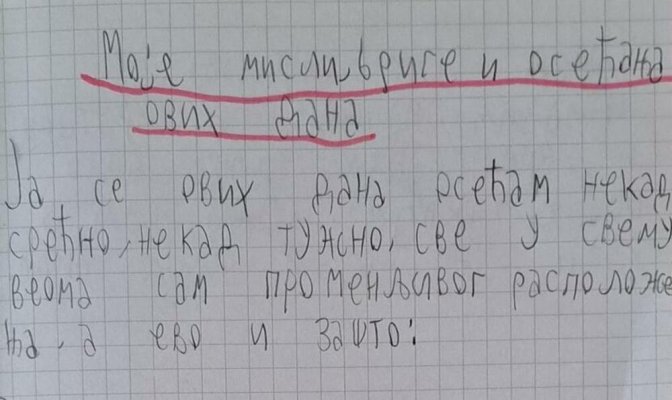 Моје мисли, бриге и осећања
ових дана
Ја се ових дана осећам некад
срећно, некад тужно, све у свему
веома сам променљивог расположе
ња, а ево и зашто: